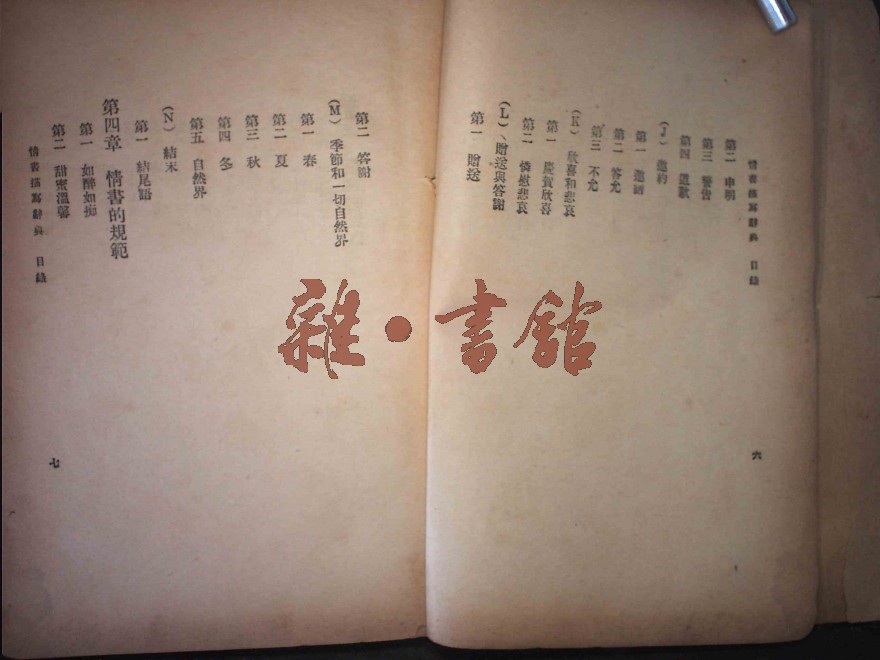 情書描寫辭典 目錄
第二 申明
第三 警告
第四 道歉
(J) 邀約
第一 邀請
第二 答允
第三 不允
(K) 欣喜和悲哀
第一 慶賀欣喜
第二 憐慰悲哀
(L) 贈送與答謝
第一 贈送
六
第二 答謝
(M) 季節和一切自然界
第一 春
第二 夏
第三 秋
第四 冬
第五 自然界
(N) 結末
第一 結尾語
第四章 情書的規範
第一 如醉如痴
第二 甜蜜溫馨
情書描寫辭典 目錄
七
雜·書館